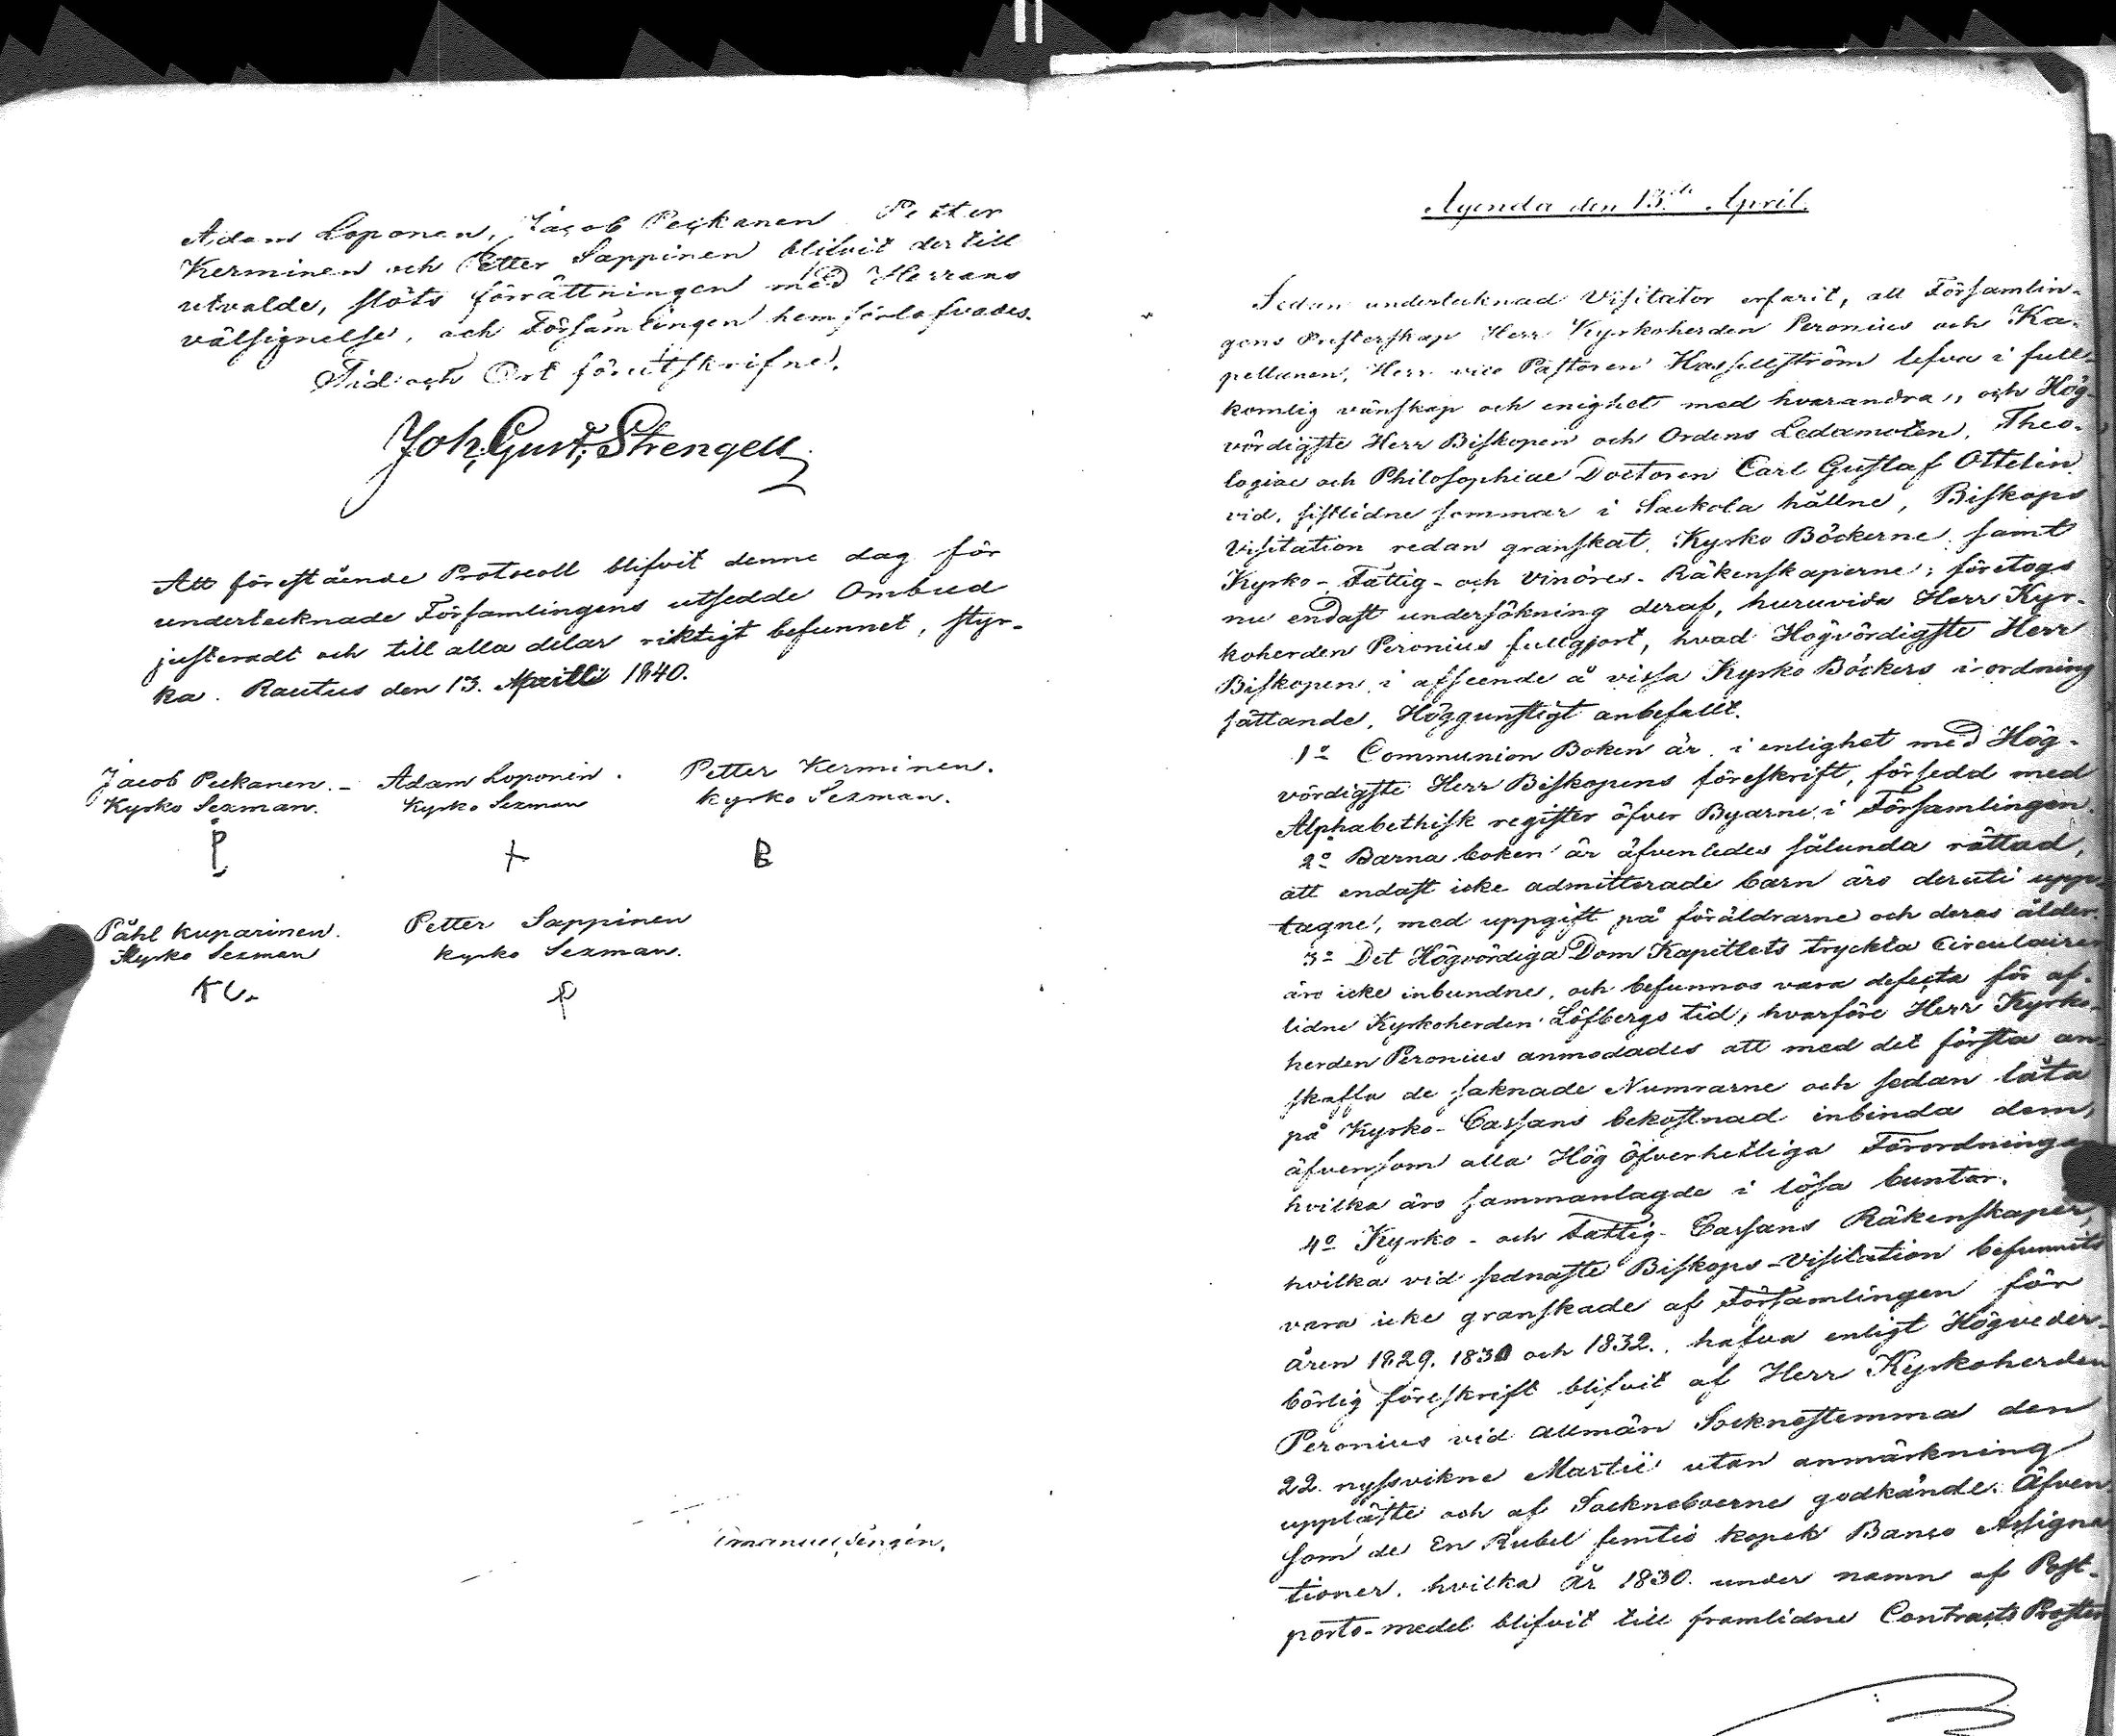 Adam Loponen, Jacob Peckanen Petter
Kerminen och Petter Sappinen blifvit der till
utvalde, slöts förrättningen med Herrans
välsignelse, och Församlingen hemförlofvades.
Tid och Ort förutskrifne.
Joh. Gust. Strengell
Att förestående Protocoll blifvit denne dag för
undertecknade Församlingens utsedde Ombud
justeradt och till alla delar riktigt befunnet, styr-
ka. Rautus den 13. 1840.
Jacob Peckanen. Adam Loponen. Petter Kerminen.
Kyrko Sexman. Kyrko Sexman Kyrko Sexman.
P + B
Påhl Kuparinen. Petter Sappinen
Kyrko Sexman Kyrko Sexman.
KU. P
Agenda den 13de April.
Sedan undertecknad Visitator erfarit, att Församlin-
gens Presterskap Herr Kyrkoherden Peronius och Ka-
pellanen, Herr vice Pastoren Hasselström lefva i full-
komlig vänskap och enighet med hvarandra, och Hög-
vördigste Herr Biskopen och Ordens Ledamoten, Theo-
logiae och Philosophiae Doctoren Carl Gustaf Ottelin
vid, sistlidne sommar i Sackola hållne, Biskops
Visitation redan granskat Kyrko Böckerne samt
Kyrko- Fattig- och Vinöres- Räkenskaperne; företogs
nu endast undersökning deraf, huruvida Herr Kyr-
koherden Peronius fullgjort, hvad Högvördigste Herr
Biskopen i afseende å vissa Kyrko Böckers i ordning
sättande, Höggunstigt anbefallt.
1o Communion Boken är i enlighet med Hög-
vördigste Herr Biskopens föreskrift, försedd med
Alphabethisk register öfver Byarne i Församlingen.
2o Barna boken är äfvenledes sålunda rättad,
att endast icke admitterade barn äro deruti upp-
tagne, med uppgift på föräldrarne och deras ålder.
3o Det Högvördiga Dom Kapitlets tryckta Circulairer
äro icke inbundne, och befunnos vara defecta för af-
lidne Kyrkoherden Löfbergs tid, hvarföre Herr Kyrko-
herden Peronius anmodades att med det första an-
skaffa de saknade Numrarne och sedan låta
på Kyrko- Cassans bekostnad inbinda dem,
äfvensom alla Hög Öfverhetliga Förordningar
hvilka äro sammanlagde i lösa buntar.
4o Kyrko- och Fattig- Cassans Räkenskaper,
hvilka vid sednaste Biskops-Visitation befunnits
vara icke granskade af Församlingen för
åren 1829. 1830 och 1832., hafva enligt Högveder-
börlig föreskrift blifvit af Herr Kyrkoherden
Peronius vid allmän Socknestemma den
22. nyssvikne Martii utan anmärkning
uppläste och af Sockneboerne godkände. Äfven
som de En Rubel femtio kopek Banco Assigna
tioner. hvilka År 1830. under namn af Post-
porto-medel blifvit till framlidne Contracts Prosten